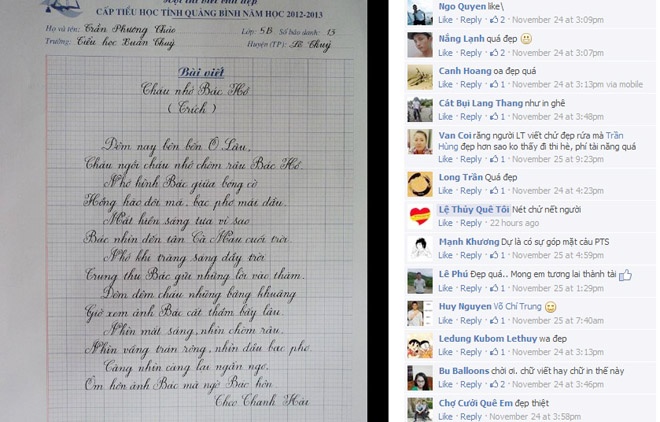 Hội thi viết chữ đẹp
CẤP TIỂU HỌC TỈNH QUẢNG BÌNH NĂM HỌC 2012-2013
Họ và tên: Trần Phương Thảo Lớp: 5B Số báo danh: 13
Trường: Tiểu học Xuân Thuỷ Huyện (TP): Lệ Thuỷ
Bài viết
Cháu nhớ Bác Hồ
( Trích )
Đêm nay bên bến Ô Lâu,
Cháu ngồi cháu nhớ chòm râu Bác Hồ.
Nhớ hình Bác giữa bóng cờ
Hồng hào đôi má, bạc phơ mái đầu.
Mắt hiền sáng tựa vì sao
Bác nhìn đến tận Cà Mau cuối trời.
Nhớ khi trăng sáng đầy trời
Trung thu Bác gửi những lời vào thăm.
Đêm đêm cháu những bâng khuâng
Giở xem ảnh Bác cất thầm bấy lâu
Nhìn mắt sáng, nhìn chòm râu,
Nhìn vầng trán rộng, nhìn đầu bạc phơ.
Càng nhìn càng lại ngẩn ngơ,
Ôm hôn ảnh Bác mà ngờ Bác hôn.
Theo Thanh Hải
Ngo Quyen like\
Like · Reply · 2 · November 24 at 3:09pm
Nắng Lạnh quá đẹp
Like · Reply · 2 · November 24 at 3:11pm
Canh Hoang oa đẹp quá
Like · Reply · 2 · November 24 at 3:13pm via mobile
Cát Bụi Lang Thang như in ghê
Like · Reply · 2 · November 24 at 3:48pm
Van Coi răng người LT viết chử đẹp rứa mà Trần
Hùng đẹp hơn sao ko thấy đi thi hè, phí tài năng quá
Like · Reply · 1 · November 25 at 9:24pm
Long Trần Quá đẹp
Like · Reply · 1 · November 24 at 4:23pm
Lệ Thủy Quê Tôi Nét chử nết người
Like · Reply · 22 hours ago
Mạnh Khương Dự là có sự góp mặt cảu PTS
Like · Reply · 1 · November 25 at 4:59pm
Lê Phú Đẹp quá.. Mong em tương lai thành tài
Like · Reply · 1 · November 25 at 1:29pm
Huy Nguyen Võ Chí Trung
Like · Reply · 1 · November 25 at 7:40am
Ledung Kubom Lethuy wa đep
Like · Reply · 1 · November 24 at 3:13pm
Bu Balloons chời ơi. chữ viết hay chữ in thế này
Like · Reply · 2 · November 24 at 3:46pm
Chợ Cưới Quê Em đẹp thiệt
Like · Reply · November 24 at 3:58pm